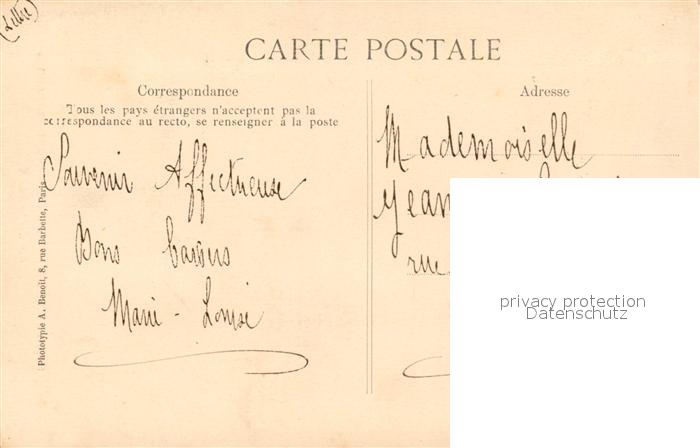 (Lettre)
CARTE POSTALE
Correspondance
Tous les pays étrangers n'acceptent pas la
correspondance au recto, se renseigner à la poste
Souvenir Affectueuse
Bons baisers
Marie-Louise
Phototypie A. Benoit, 8, rue Barbette, Paris
Adresse
Mademoiselle
Jean
rue
privacy protection
Datenschutz